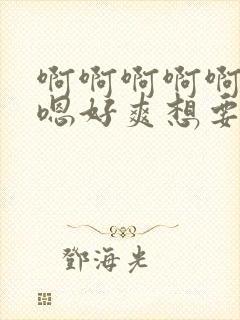 啊啊啊啊啊
嗯好爽想要
鄧海光